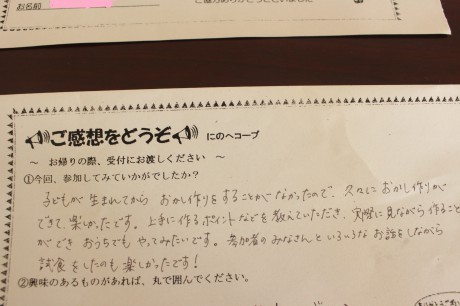 お名前
ご協力ありがとうございました
ご感想をどうぞ にのへコープ
～ お帰りの際、受付にお渡しください ～
①今回、参加してみていかがでしたか?
子どもが生まれてから おかし作りをすることがなかったので、久々におかし作りが
できて、楽しかったです。上手に作るポイントなどを教えていただき、実際に見ながら作ること
ができ おうちでも やってみたいです。参加者のみなさんと いろいろな お話をしながら
試食をしたのも楽しかったです!
②興味のあるものがあれば、丸で囲んでください。